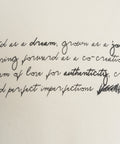 d as a dream, grown as a jo
ring forward as a co-creatio
am of love for authenticity, c
d perfect imperfections